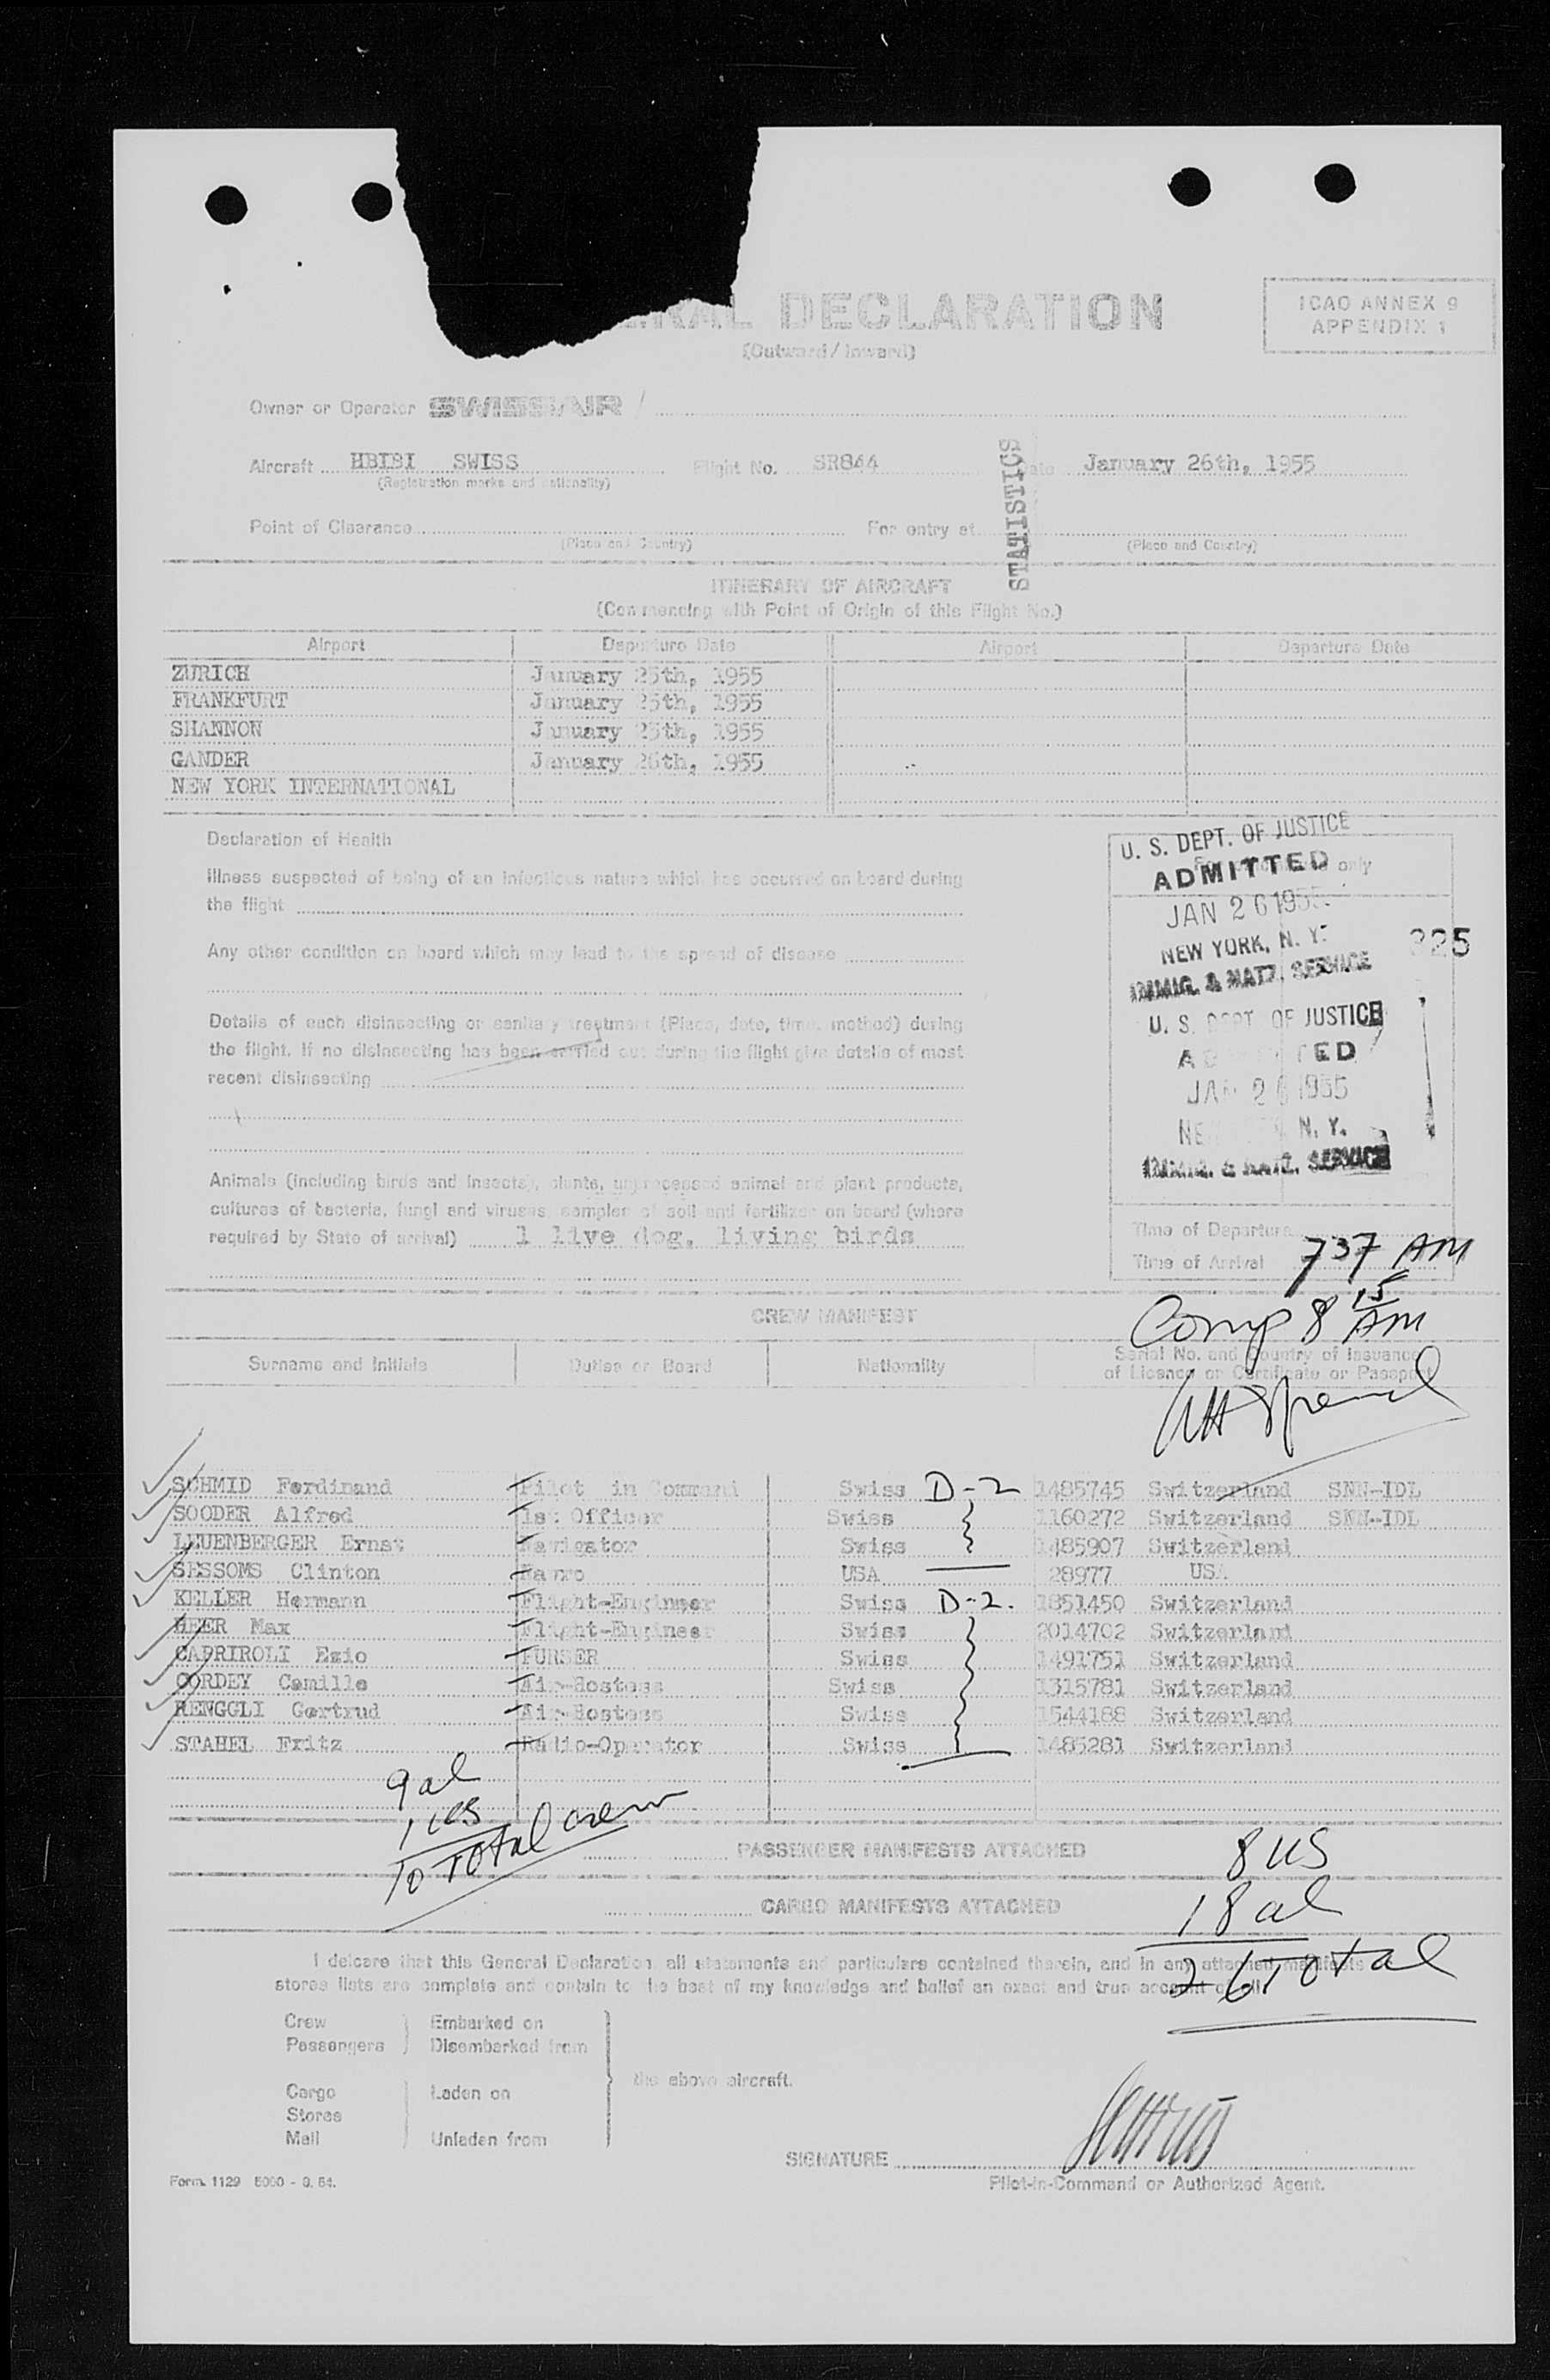 ERAL DECLARATION
(Outward / Inward)
ICAO ANNEX 9
APPENDIX 1
Owner or Operator SWISSAIR /
Aircraft HBIBI SWISS Flight No. SR844 Date January 26th, 1955
(Registration marks and nationality)
STATISTICS
Point of Clearance For entry at
(Place and Country) (Place and Country)
ITINERARY OF AIRCRAFT
(Commencing with Point of Origin of this Flight No.)
Airport Departure Date Airport Departure Date
ZURICH January 25th, 1955
FRANKFURT January 25th, 1955
SHANNON January 25th, 1955
GANDER January 26th, 1955
NEW YORK INTERNATIONAL
Declaration of Health
Illness suspected of being of an infectious nature which has occurred on board during
the flight
Any other condition on board which may lead to the spread of disease
Details of each disinsecting or sanitary treatment (Place, date, time, method) during
the flight. If no disinsecting has been carried out during the flight give details of most
recent disinsecting
Animals (including birds and insects), plants, unprocessed animal and plant products,
cultures of bacteria, fungi and viruses, samples of soil and fertilizer on board (where
required by State of arrival) 1 live dog, living birds
U. S. DEPT. OF JUSTICE
ADMITTED only
JAN 26 1955
NEW YORK, N. Y.
IMMIG. & NATZ. SERVICE
225
U. S. DEPT OF JUSTICE
ADMITTED
JAN 26 1955
NEW YORK N. Y.
IMMIG. & NATZ. SERVICE
Time of Departure
Time of Arrival 737 AM
Comp 8 15 AM
CREW MANIFEST
Surname and Initials Duties on Board Nationality Serial No. and Country of Issuance
of Licence or Certificate or Passport
SCHMID Ferdinand Pilot in Command Swiss D-2 1485745 Switzerland SNN-IDL
SOODER Alfred 1st Officer Swiss 1160272 Switzerland SNN-IDL
LEUENBERGER Ernst Navigator Swiss 1485907 Switzerland
SESSOMS Clinton USA 28977 USA
KELLER Hermann Flight-Engineer Swiss D-2. 1851450 Switzerland
HEER Max Flight-Engineer Swiss 2014702 Switzerland
CAPRIROLI Ezio PURSER Swiss 1491751 Switzerland
CORDEY Camille Air-Hostess Swiss 1315781 Switzerland
RENGGLI Gertrud Air-Hostess Swiss 1544188 Switzerland
STAHEL Fritz Radio-Operator Swiss 1485281 Switzerland
9 al
1 US
10 Total crew
PASSENGER MANIFESTS ATTACHED
8 US
CARGO MANIFESTS ATTACHED
18 al
26 Total
I delcare that this General Declaration all statements and particulars contained therein, and in any attached manifests
stores lists are complete and contain to the best of my knowledge and belief an exact and true account of all
Crew Embarked on
Passengers Disembarked from
the above aircraft.
Cargo Laden on
Stores
Mail Unladen from
SIGNATURE
Pilot-in-Command or Authorized Agent.
Form. 1129 5000 - 9. 54.